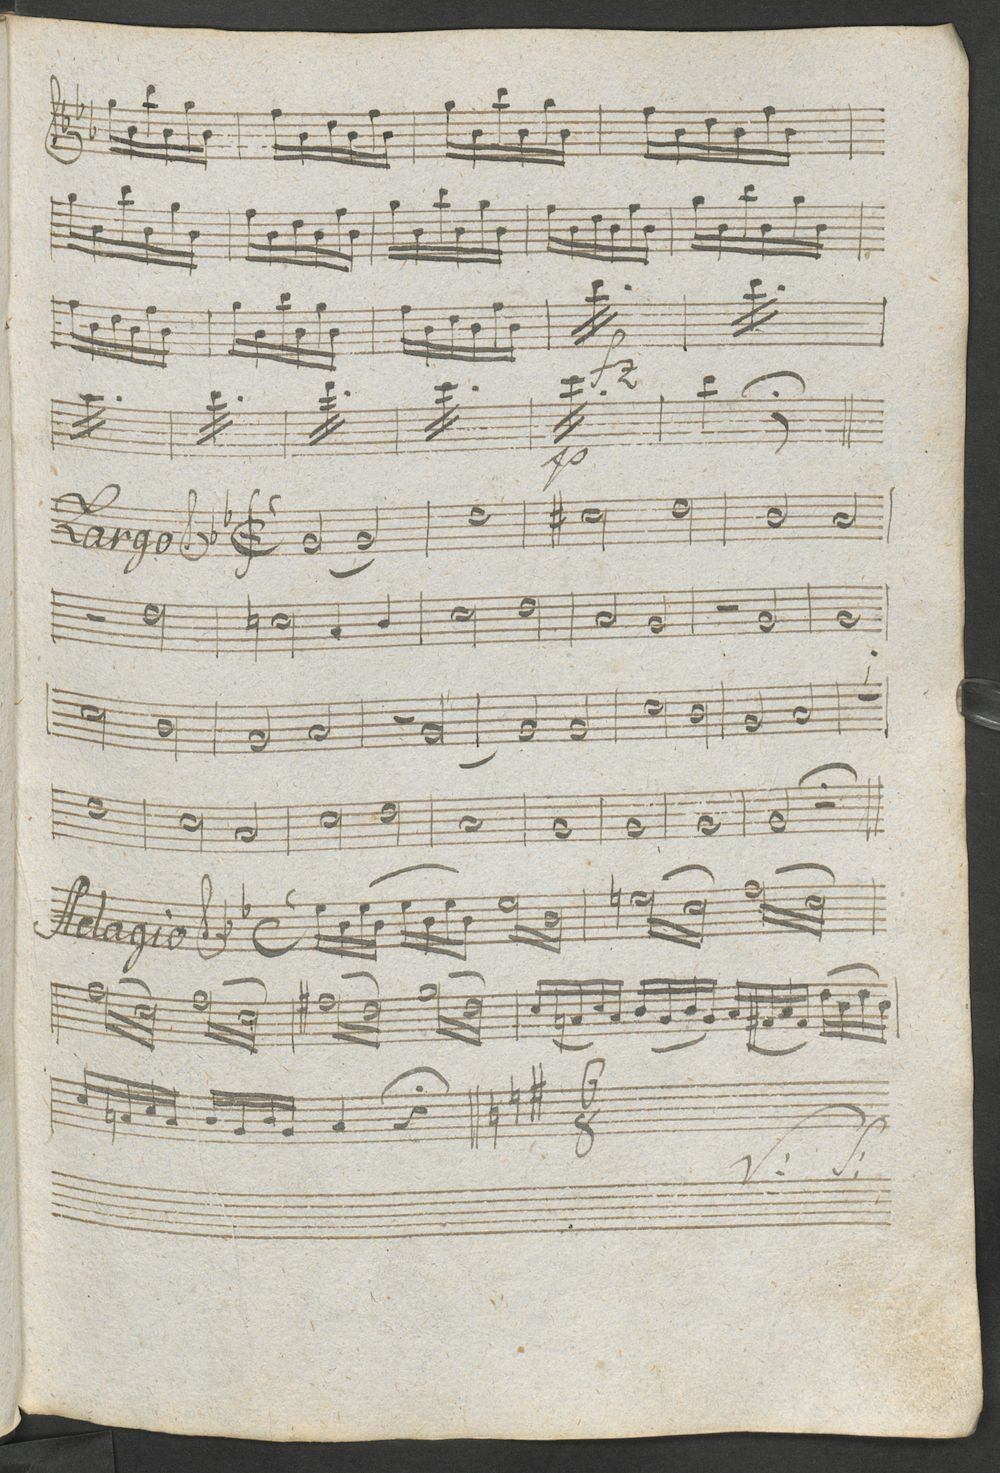 fz
p
Largo
Adagio
6
8
V: S: